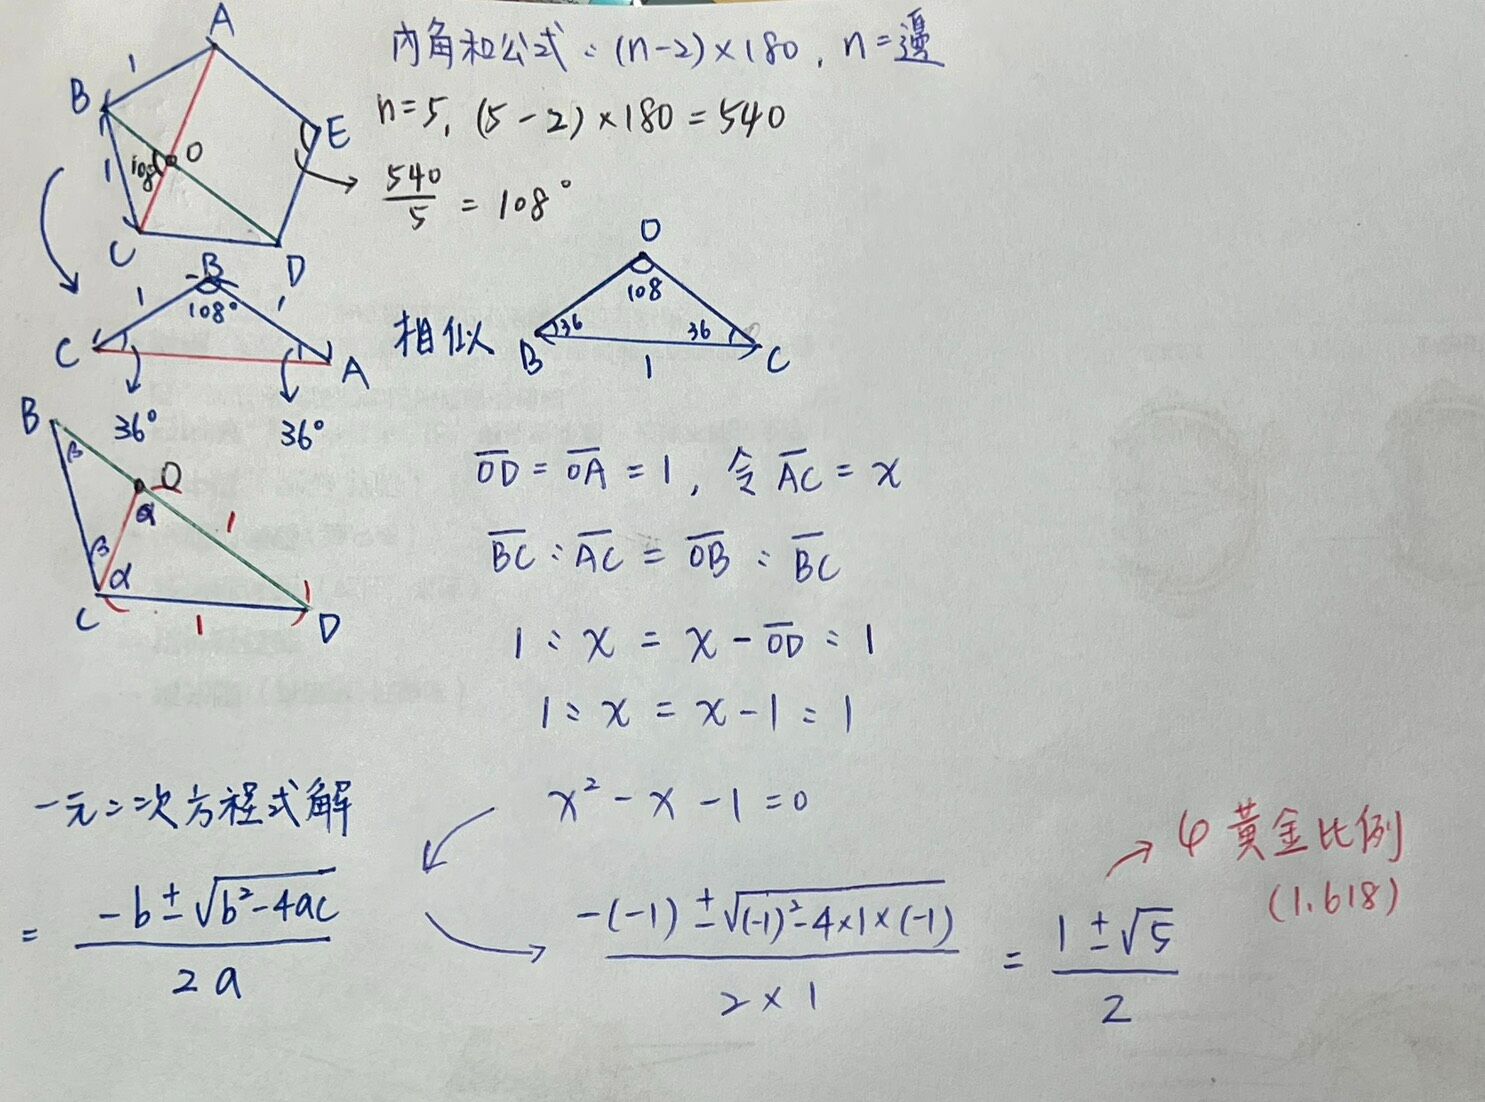 內角和公式：(n-2)×180，n=邊
n=5，(5-2)×180=540
540/5 = 108°
A
1
B
E
1
108
O
C
D
B
1
1
108°
C
A
36°
36°
相似
O
108
36
36
B
1
C
B
β
O
α
1
β
α
C
1
1
D
OD = OA = 1，令 AC = x
BC : AC = OB : BC
1 : x = x - OD : 1
1 : x = x - 1 : 1
x² - x - 1 = 0
一元二次方程式解
= (-b±√(b²-4ac))/(2a)
(-(-1)±√((-1)²-4×1×(-1)))/(2×1) = (1±√5)/2
→ φ 黃金比例
(1.618)